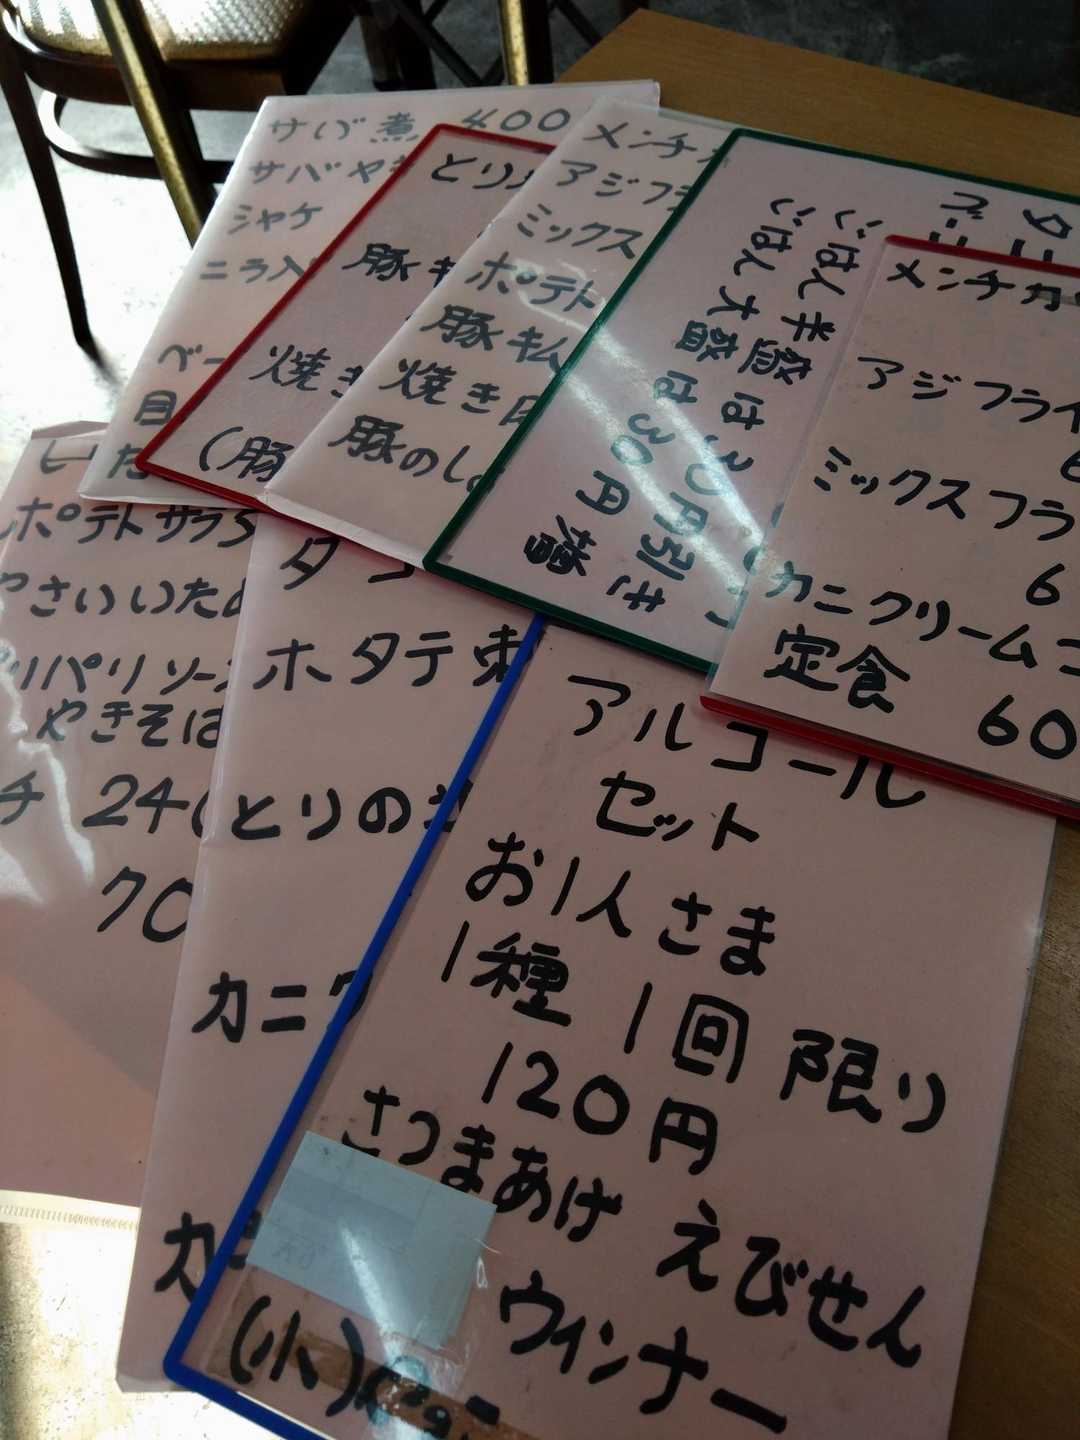 サバ煮 400
サバや
シャケ
ニラ入
ベー
目
とり
豚キ
焼き
(豚
メンチカ
アジフ
ミックス
ポテト
豚キム
焼き
豚のし
ごはん半般は30円引き
ごはん大般は30円増
メンチカ
アジフライ
6
ミックスフラ
6
カニクリームコ
定食 60
ポテトサラダ
やさいいため
パリパリソー
やきそば
チ 24
70
タコ
ホタテ刺
とりの
カニク
アルコール
セット
お1人さま
1種 1回 限り
120円
さつまあげ えびせん
ウインナー
(小)